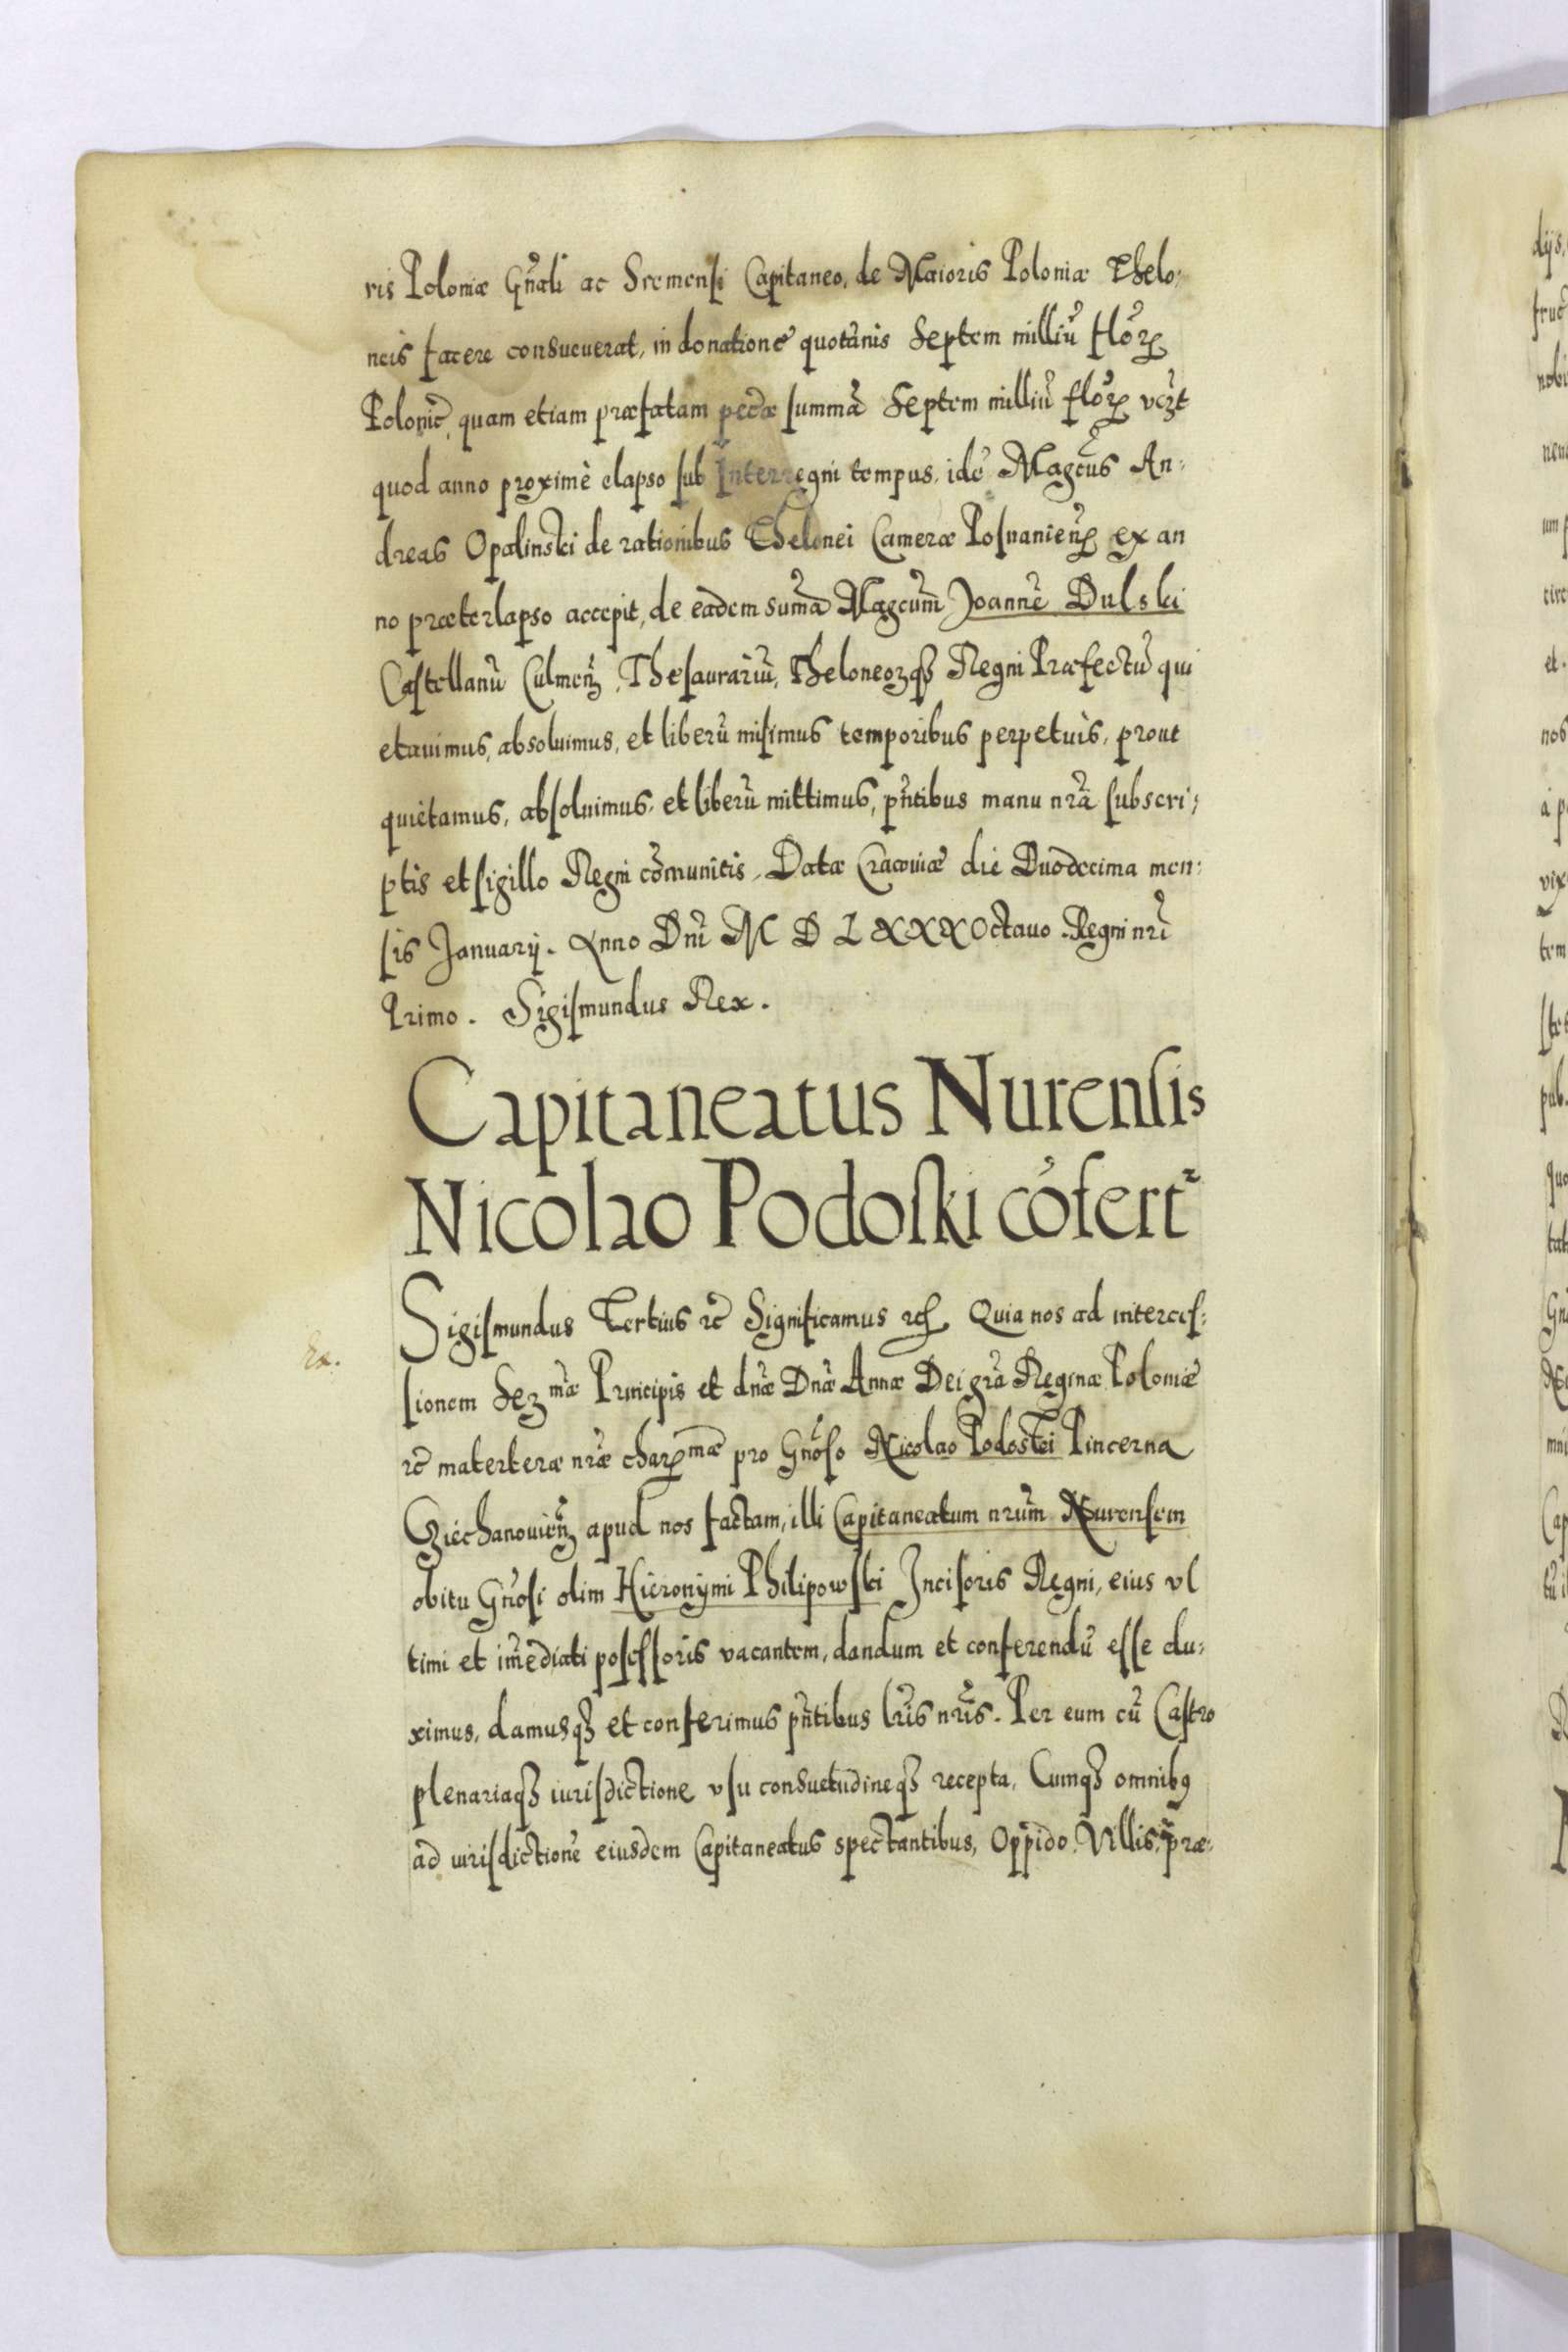 ris Poloniæ Gñali ac Sremensi Capitaneo, de Maioris Poloniæ Thelo,
neis facere consueuerat, in donationẽ quotãnis Septem milliũ flõrꝝ
Polonic̃, quam etiam præfatam pec̃æ summã Septem milliũ flõrꝝ vcꝫt
quod anno proximè elapso sub Interregni tempus, idẽ Magc̃us An,
dreas Opalinski de rationibus Thelonei Cameræ Posnanien̄ꝝ ex an
no præterlapso accepit, de eadem sum̃a Magcum̃ Joannẽ Dulski
Castellanũ Culmen̄ꝫ, Thesaurariũ, Theloneoꝝqꝫ Regni Præfectũ qui
etauimus, absoluimus, et liberũ misimus temporibus perpetuis, prout
quietamus, absoluimus, et liberũ mittimus, pñtibus manu nr̃a subscri,
ptis et sigillo Regni cõmunitis. Datæ Cracouiæ die Duodecima men,
sis Januarij. Anno Dñi M D L XXX Octauo. Regni nr̃i
Primo. Sigismundus Rex.
Capitaneatus Nurensis
Nicolao Podoski cõfertᷣ
Sigismundus Tertius rc̃ Significamus rcꝭ. Quia nos ad interces,
Ex.
sionem Serᵐæ Principis et dnæ Dnæ Annæ Dei gr̃a Reginæ Poloniæ
rc̃ materteræ nr̃æ charꝝᵐæ pro Gñoso Nicolao Podoski Pincerna
Cziechanouien̄ꝫ apud nos factam, illi Capitaneatum nrum̃ Nurensem
obitu Gñosi olim Hieronymi Philipowski Incisoris Regni, eius vl
timi et im̃ediati possessoris vacantem, dandum et conferendũ esse du,
ximus, damusqꝫ et conferimus pñtibus lr̃is nr̃is. Per eum cũ Castro
plenariaqꝫ iurisdictione vsu consuetudineqꝫ recepta, Cumqꝫ omnibꝯ
ad iurisdictionẽ eiusdem Capitaneatus spectantibus, Oppido, Villis, præ,